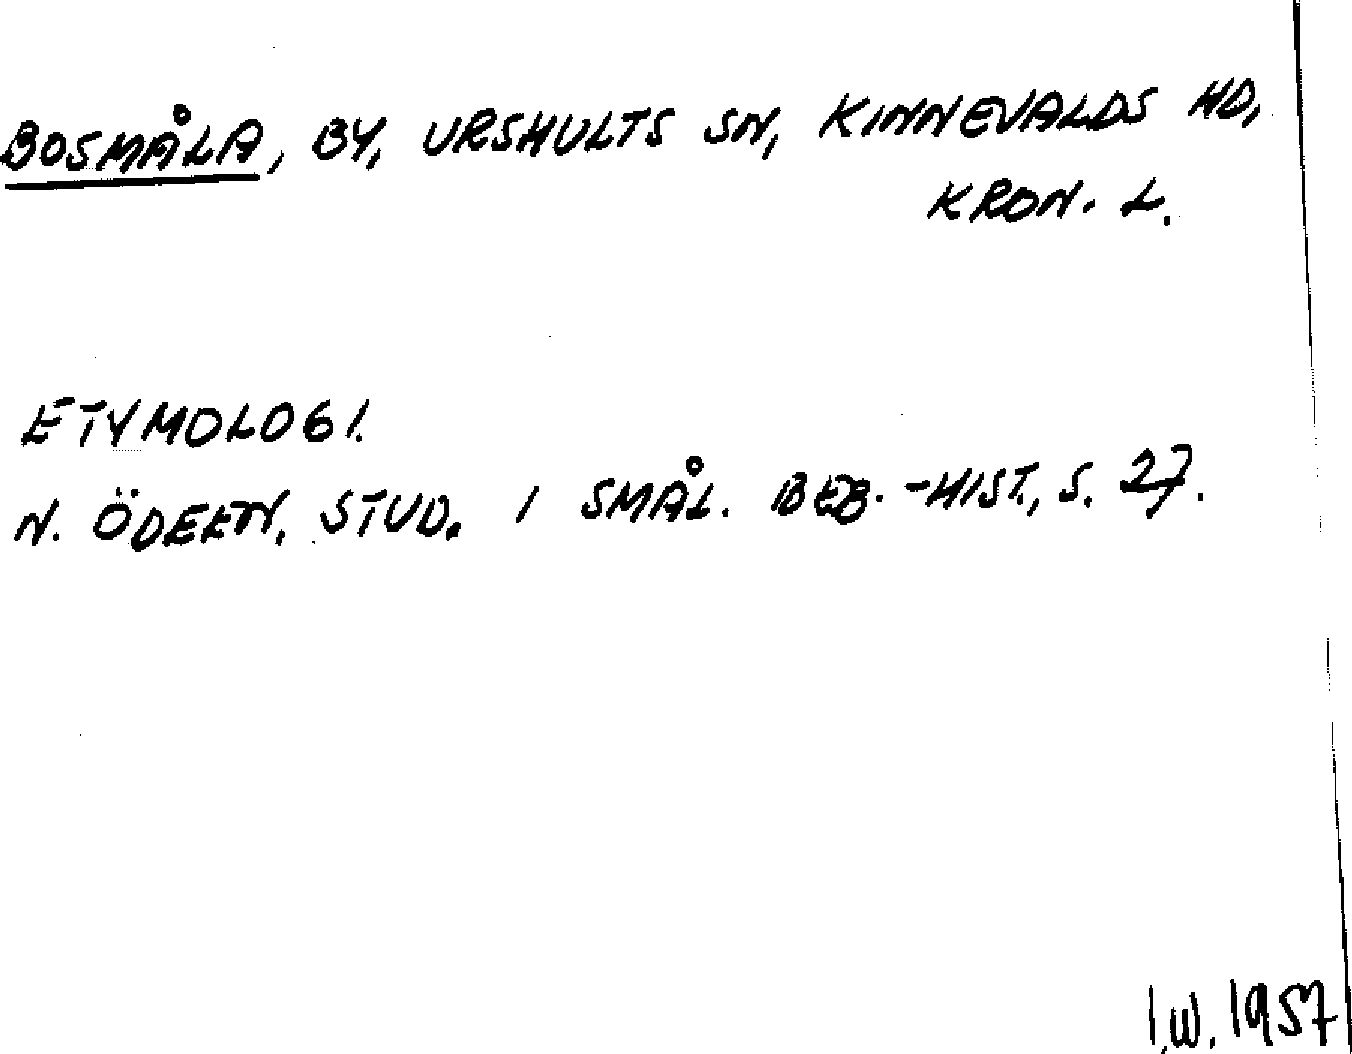 BOSMÅLA, BY, URSHULTS SN, KINNEVALDS HD,
KRON. L.
ETYMOLOGI.
N. ÖDEEN, STUD. I SMÅL. BEB.-HIST., S. 27.
I.W. 1957